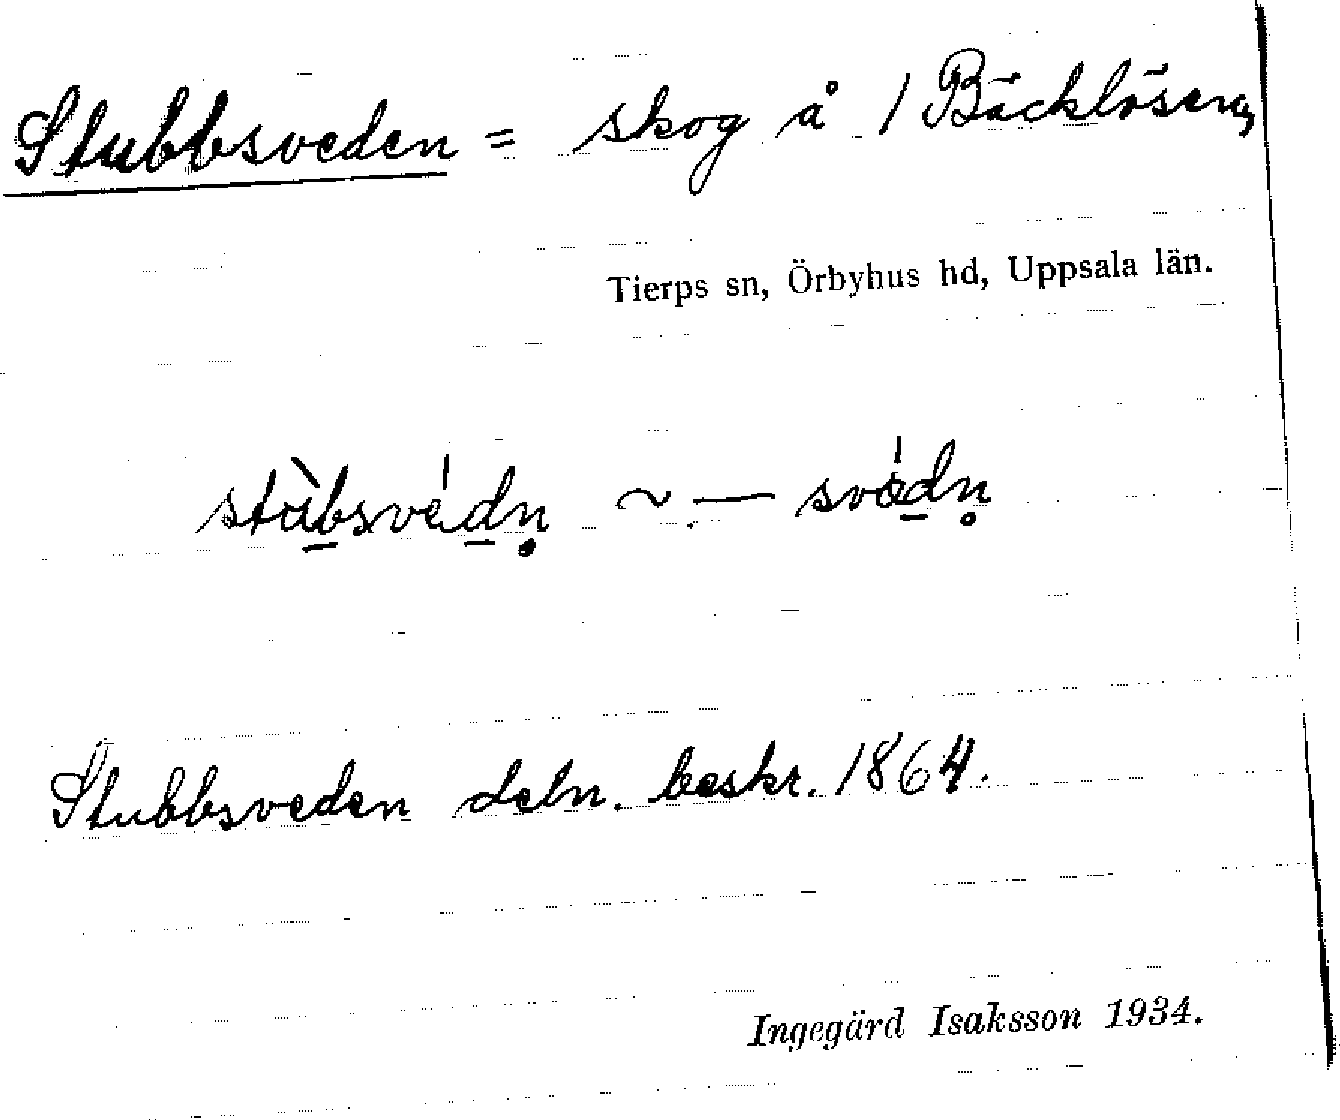 Stubbsveden = skog å 1 Bäcklösa,
Tierps sn, Örbyhus hd, Uppsala län.
stùbsvédṇ ~ — svédṇ
Stubbsveden deln. beskr. 1864.
Ingegärd Isaksson 1934.